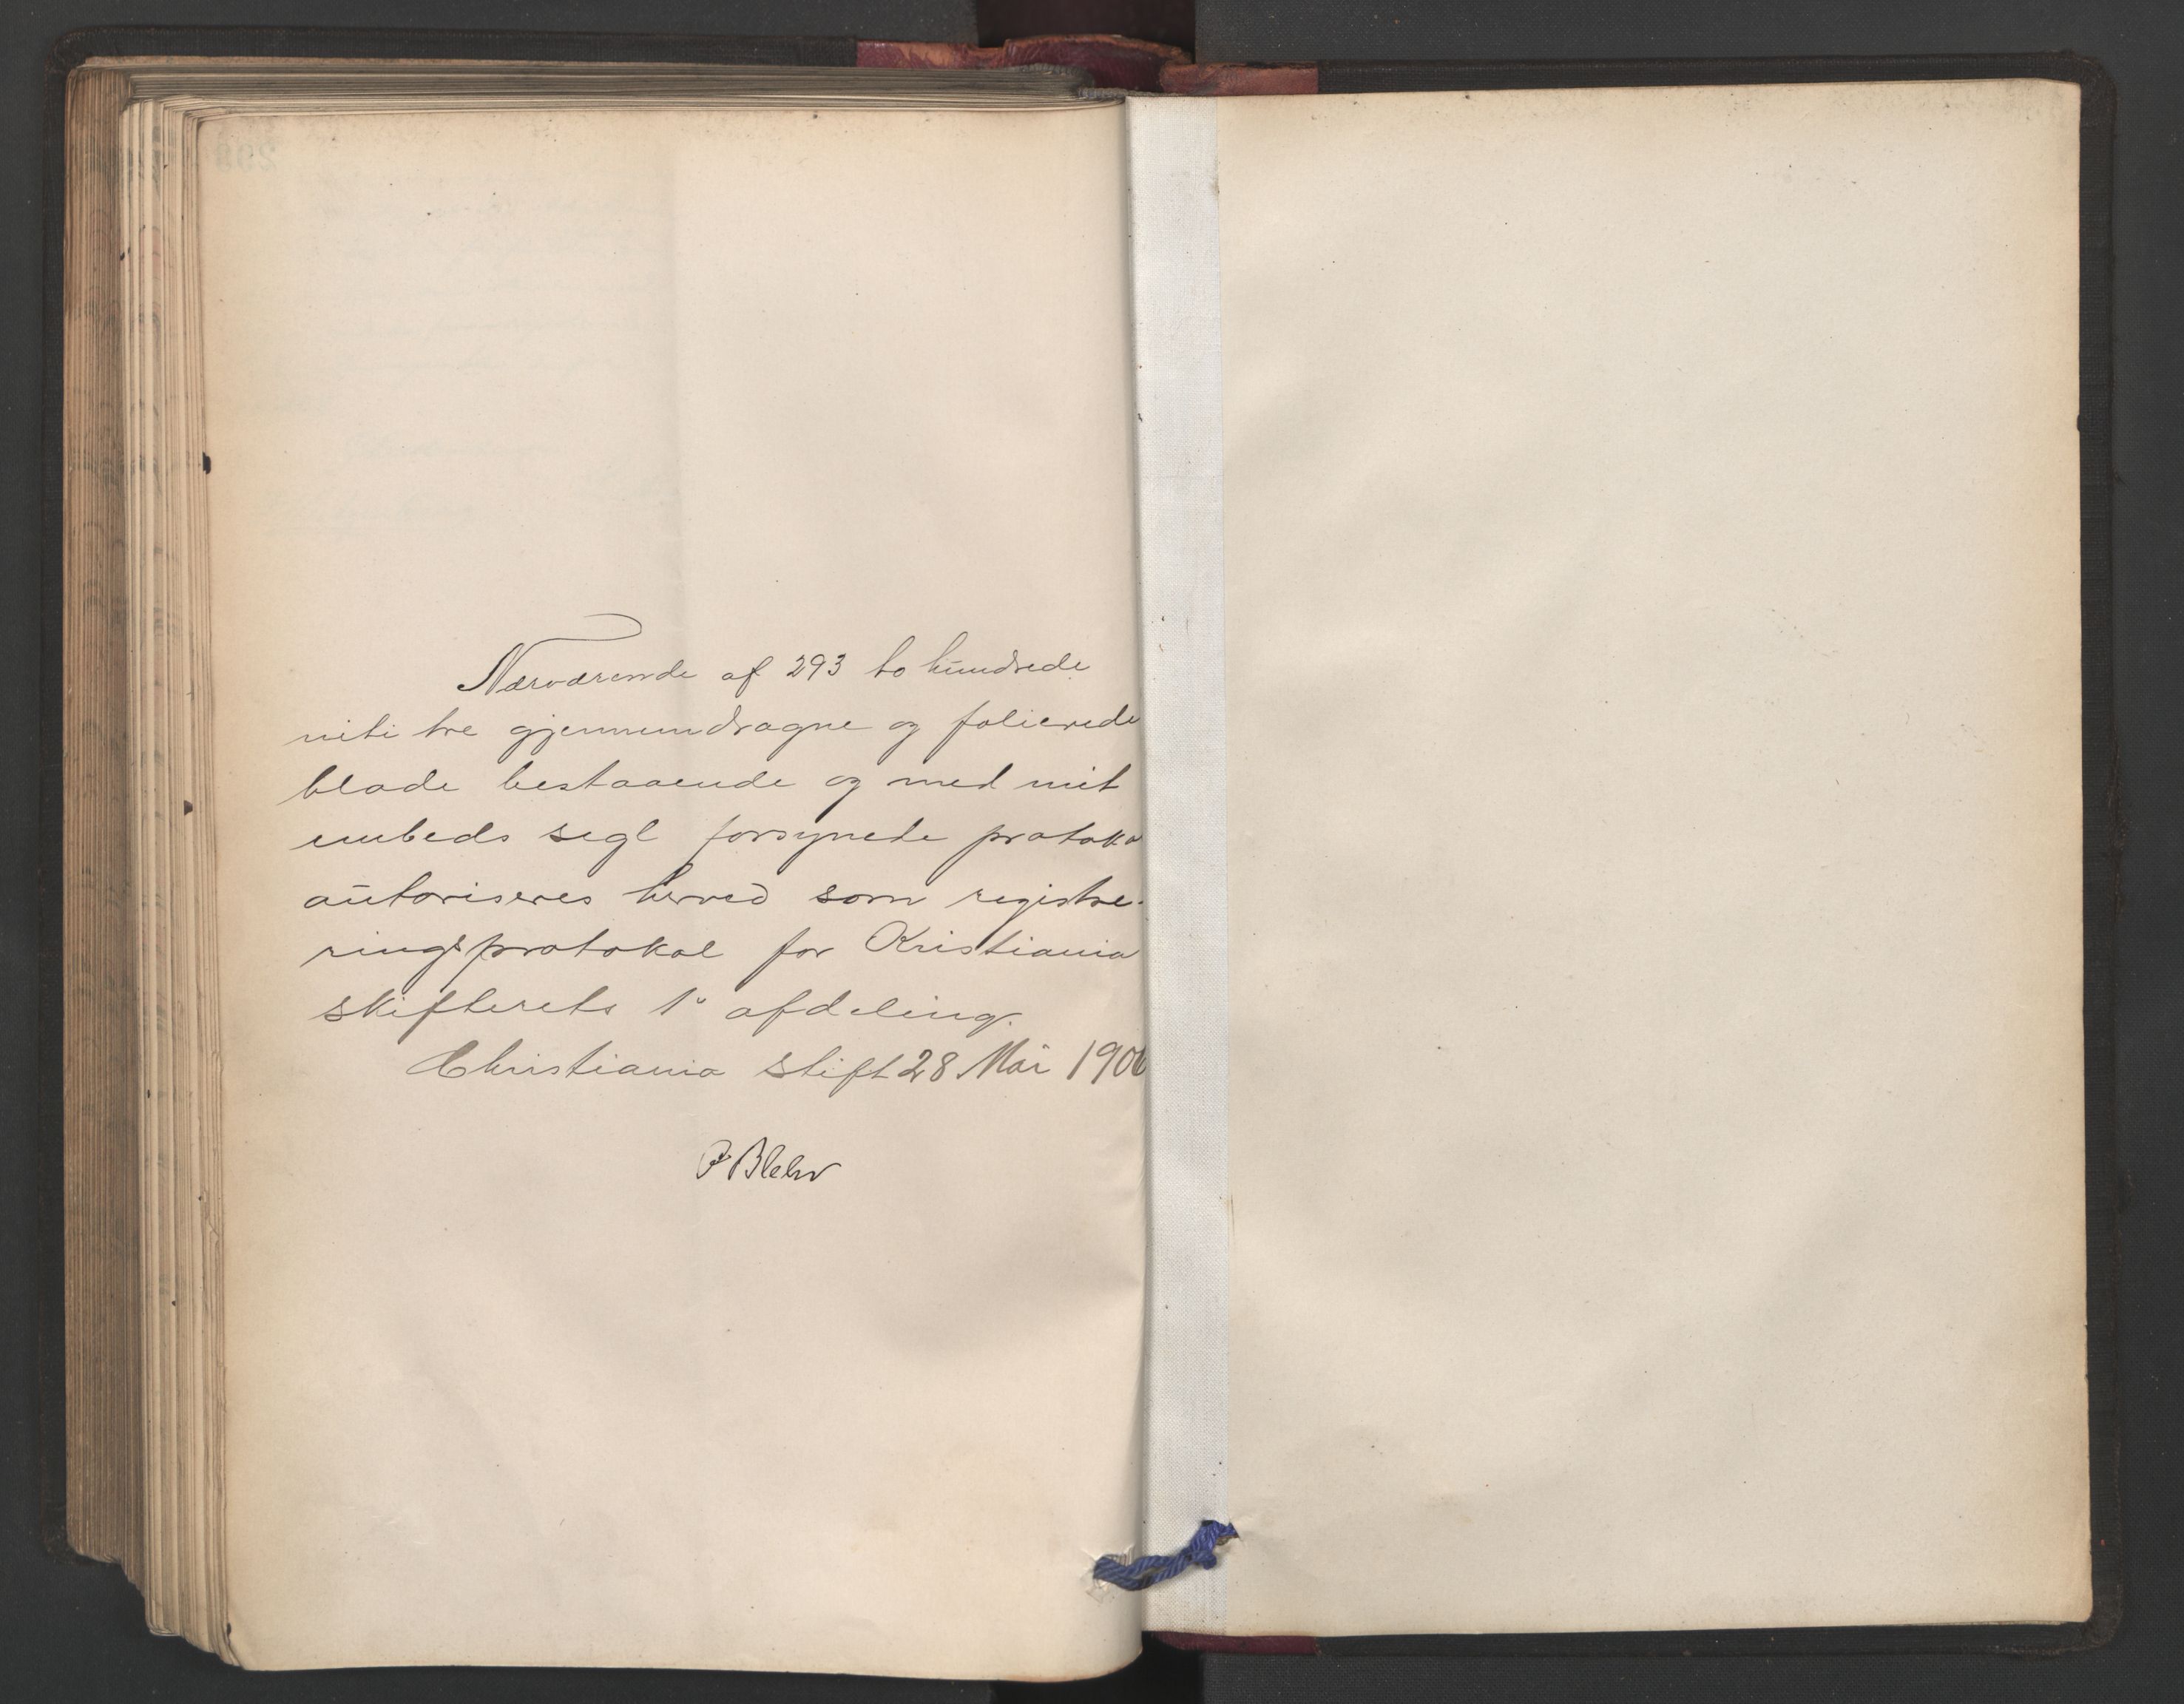 Nærværende af 293 to hundrede
niti tre gjennemdragne og folierede
blade bestaaende og med mit
embeds segl forsynede protoko
autoriseres herved som registre-
ringsprotokol for Kristiania
skifterets 1ᵉ afdeling.
Christiania stift 28 Mai 190
Blehr